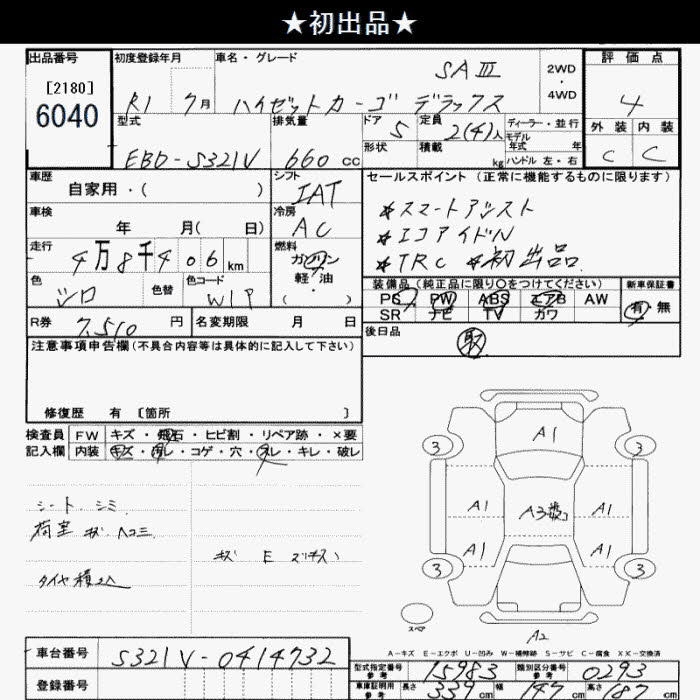 ★初出品★
出品番号 初度登録年月 車名・グレード 評価点
[2180]
6040
R1 7月 ハイゼットカーゴ デラックス SAⅢ
2WD
・
4WD
4
型式 排気量 ドア 定員 ディーラー・並行 外装 内装
EBD-S321V 660cc 5 2(4)人
モデル年式 年
形状 積載 kg ハンドル 左・右
C C
車歴 シフト セールスポイント (正常に機能するものに限ります)
自家用・( ) IAT
車検 冷房
年 月( 日) AC
*スマートアシスト
*エコアイドル
*TRC *初出品
走行 燃料
4万8千406km ガソリン
軽油
・( )
色 色替 色コード
シロ W19
装備品 (純正品に限り〇をつけてください) 新車保証書
PS PW ABS エアB AW
SR ナビ TV カワ
有・無
R券 7,510円 名変期限 月 日
後日品
取
注意事項申告欄 (不具合内容等は具体的に記入して下さい)
修復歴 有 [箇所 ]
検査員 FW キズ・飛石・ヒビ割・リペア跡・×要
記入欄 内装 キズ・汚レ・コゲ・穴・スレ・キレ・破レ
シート シミ
荷室 キズ ヘコミ
キズ E
タイヤ積込
A1
3 3
A1 A3 A1
A1 A1
3 3
スペア
A2
A-キズ E-エクボ U-凹み W-補修跡 S-サビ C-腐食 XX-交換済
車台番号 S321V-0414732
登録番号
型式指定番号 参考 15983 類別区分番号 参考 0293
車庫証明用 参考 長さ 339cm 幅 147cm 高さ 187cm